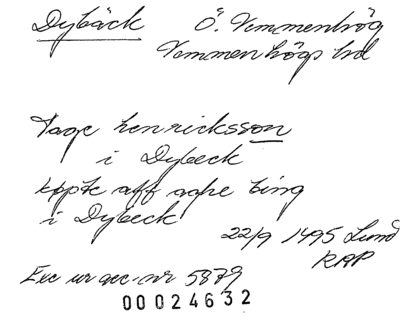 Dybäck Ö. Vemmenhög
Vemmenhögs hd
Tage henricksson
i Dybeck
kppte aff aghe bing
i Dybeck
22/9 1495 Lund
RAP
Exc ur acc. nr 5879
00024632